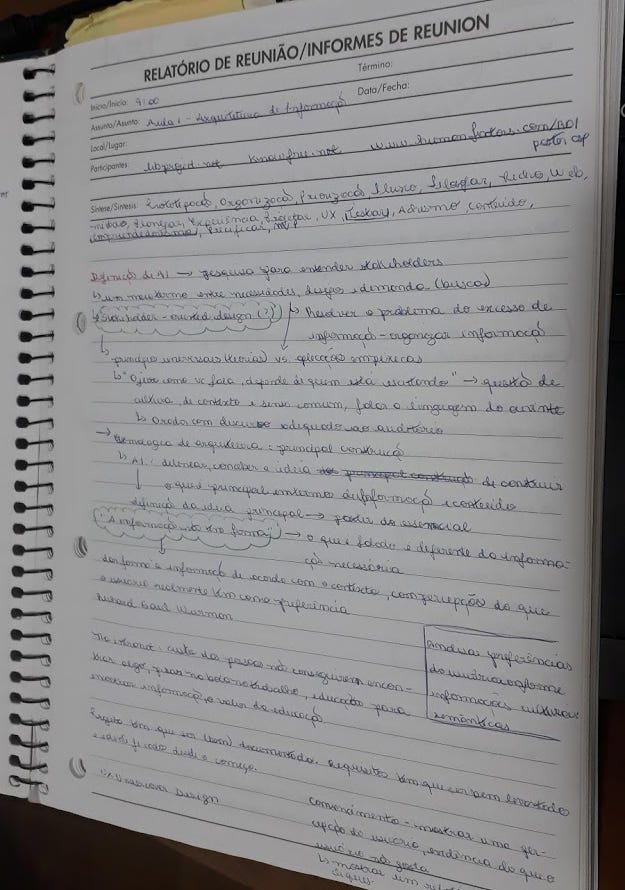 RELATÓRIO DE REUNIÃO/INFORMES DE REUNION
Início/Inicio: 9:00
Término:
Assunto/Asunto: Aula 1 - Arquitetura de Informaçã
Data/Fecha:
Local/Lugar:
Participantes:
www.humanfactors.com/BDI
Síntese/Síntesis: Prototipação, Organização, Priorização, Fluxo, Web,
Planejar, Experiência, Projetar, UX, (Testar), conteúdo,
empreendedorismo, Precificar, MVP
Definição de AI → pesquisa para entender stakeholders
↳ um meio termo entre necessidades, desejos e demanda (busca)
Stakeholder - oriented design (?)
↳ Resolver o problema do excesso de
informaçã - organizar informaçã
↳ princípios universais (teoria) vs. aplicação empíricas
↳ "O jeito como vc fala, depende de quem está escutando" → questã de
cultura, de contexto e senso comum, falar a linguagem do ouvinte
↳ Orador com discurso adequado ao auditório
→ de arquitetura: principal construçã
↳ AI: delinear, conceber a ideia de construir
↓ o que é principal em termos de informaçã e conteúdo
definiçã da ideia principal → partir do essencial
"A informaçã não tem forma" → o que é falado é diferente da informa-
çã necessária
dar forma a informaçã de acordo com o contexto, com percepção do que
o usuário realmente tem como preferência
Richard Saul Wurman
Na internet: custo das pessoas não conseguirem encon-
trar algo, no trabalho, educação para
encontrar informaçã, o valor da educaçã
analisar preferências
do usuário conforme
informações culturais
semânticas
Projeto tem que ser bem documentado. Requisitos tem que ser bem levantado
e identificado desde o começo.
Design
convencimento - mostrar uma per-
cepção do usuário, evidência do que o
usuário não gosta
↳ mostrar um